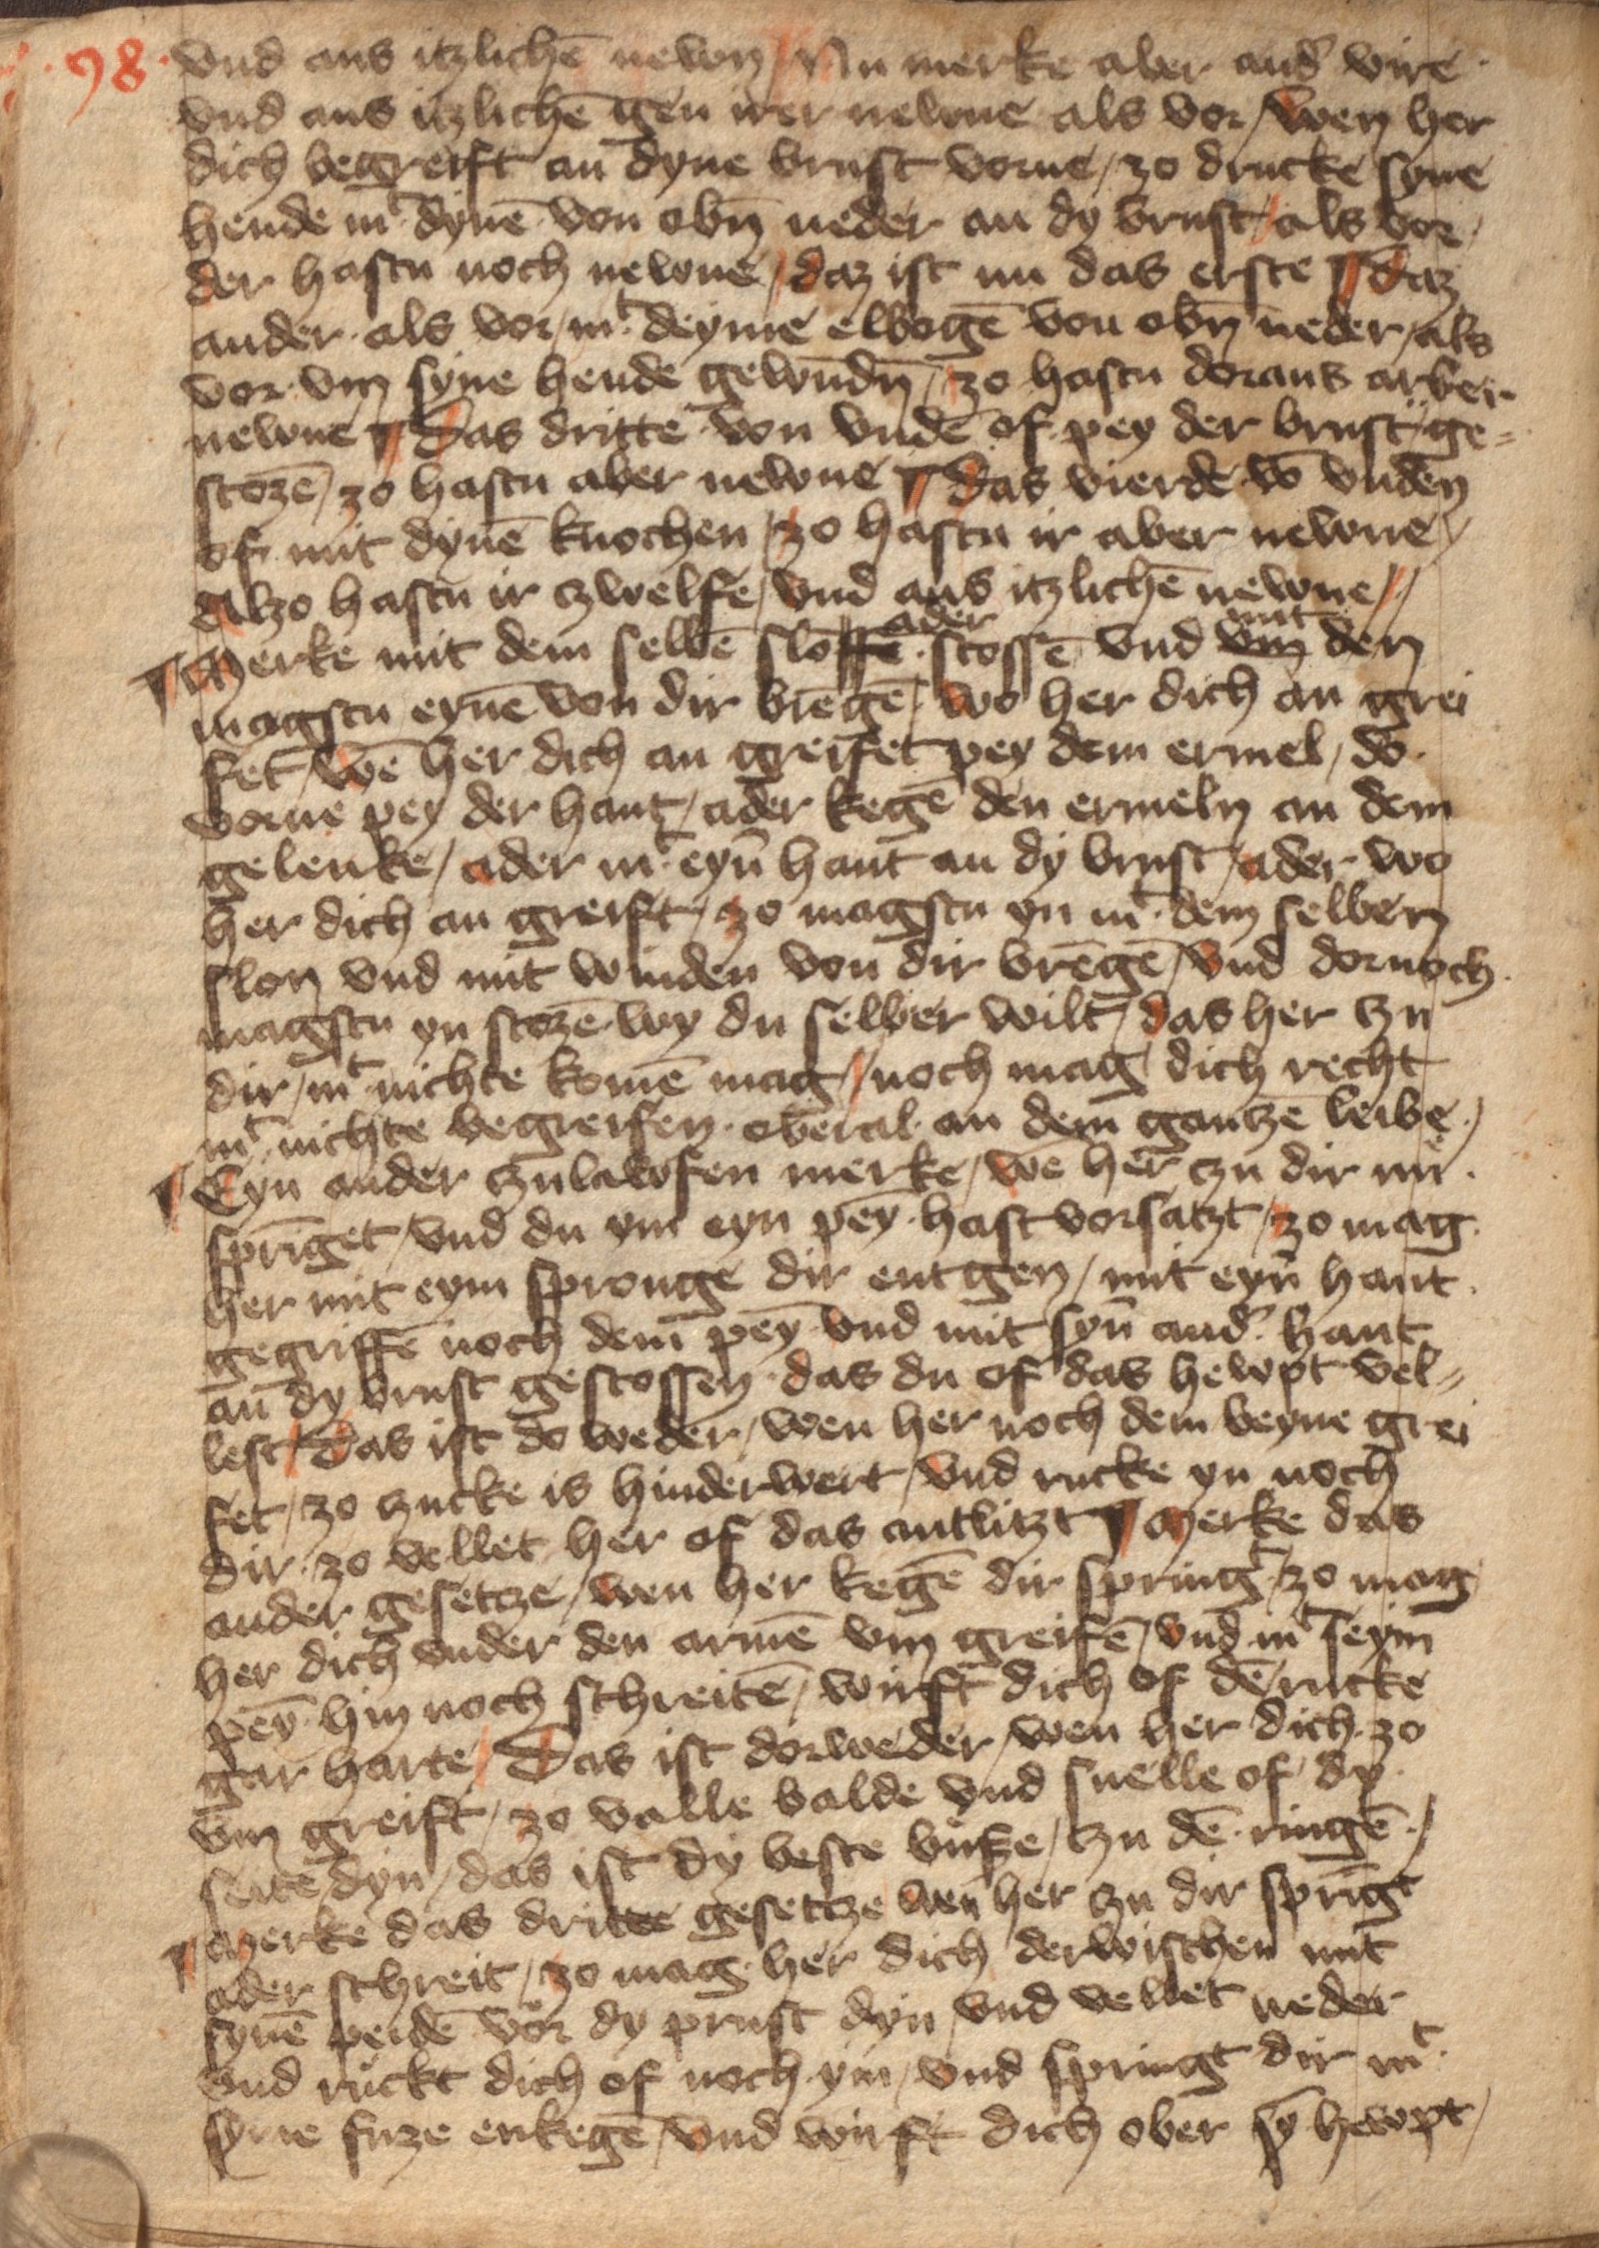 98.
vnd aus itzlichē newn / Nu merke aber and᷑ vire
vnd aus itzlichē gen irer newne als vor / wen her
dich begreift an dyne brust vorne / zo drucke syne
hende mᵗ dynē von obñ neder an dy brust / als vor /
der hastu noch newne / daz ist nu das erste ¶ Daz
ander als vor / mᵗ deyme elbogē von obñ neder / als
vor vm syne hende gewundñ / zo hastu doraus aber
newne ¶ Das dritte von vndē of pey der brust ge=
stozē / zo hastu aber newne ¶ Das vierde vō vnden
of mit dynē knochen / zo hastu ir aber newne /
Alzo hastu ir czwelfe / vnd aus itzlichē newne //
¶ Merke mit dem selbē slossē ader stossē vnd vm mit den
magstu eynē von dir bregē / wo her dich an grei
fet / wē her dich an greifet pey dem ermel / do
vorne pey der hant / ader kegē den ermeln an dem
gelenke / ader mᵗ eyn̄ hant an dy brust / ader wo
her dich an greift / zo magstu yn mᵗ dem selben
slon vnd mit winden von dir brēgē / vnd dornoch
magstu yn stozē wy du selber wilt / das her zu
dir / mᵗ nichte komē mag / noch mag dich recht
mᵗ nichte begreifen oberal an dem gantzē leibe /
¶ Eyn ander zulawfen merke / wē her zu dir in
sprīget / vnd du ym eyn pey hast vorsatzt / zo mag
her mit eym spronge dir entgen / mit eyn̄ hant
gegriffē noch dem pey vnd mit syn̄ and᷑ hant
an dy brust gestossen das du of das hewpt vel=
lest / Das ist do weder / wen her noch dem beyne grei
fet / zo zucke is hinderwert / vnd rucke yn noch
dir zo vellet her of das antlitzt ¶ Merke das
ander gesetcze / wen her kegē dir springᵗ / zo mag
her dich vnder den armē vm greifē / vnd mᵗ seym
pey hin noch schreitē / wirft dich of dē rucke
gar harte / Das ist dorweder / wen her dich zo
vm greift / zo valle balde vnd snelle of dy
seite dyn / das ist dy beste buße / zu dē ringē /
¶ Merke das dritte gesetcze wen her zu dir sprīgᵗ
ader schreit / zo mag her dich derwischen mit
synē peidē vor dy prust dyn / vnd vellet neder
vnd ruckt dich of noch ym / vnd springt dir mᵗ
syne fuze enkegē / vnd wirft dich ober sȳ hewpt /